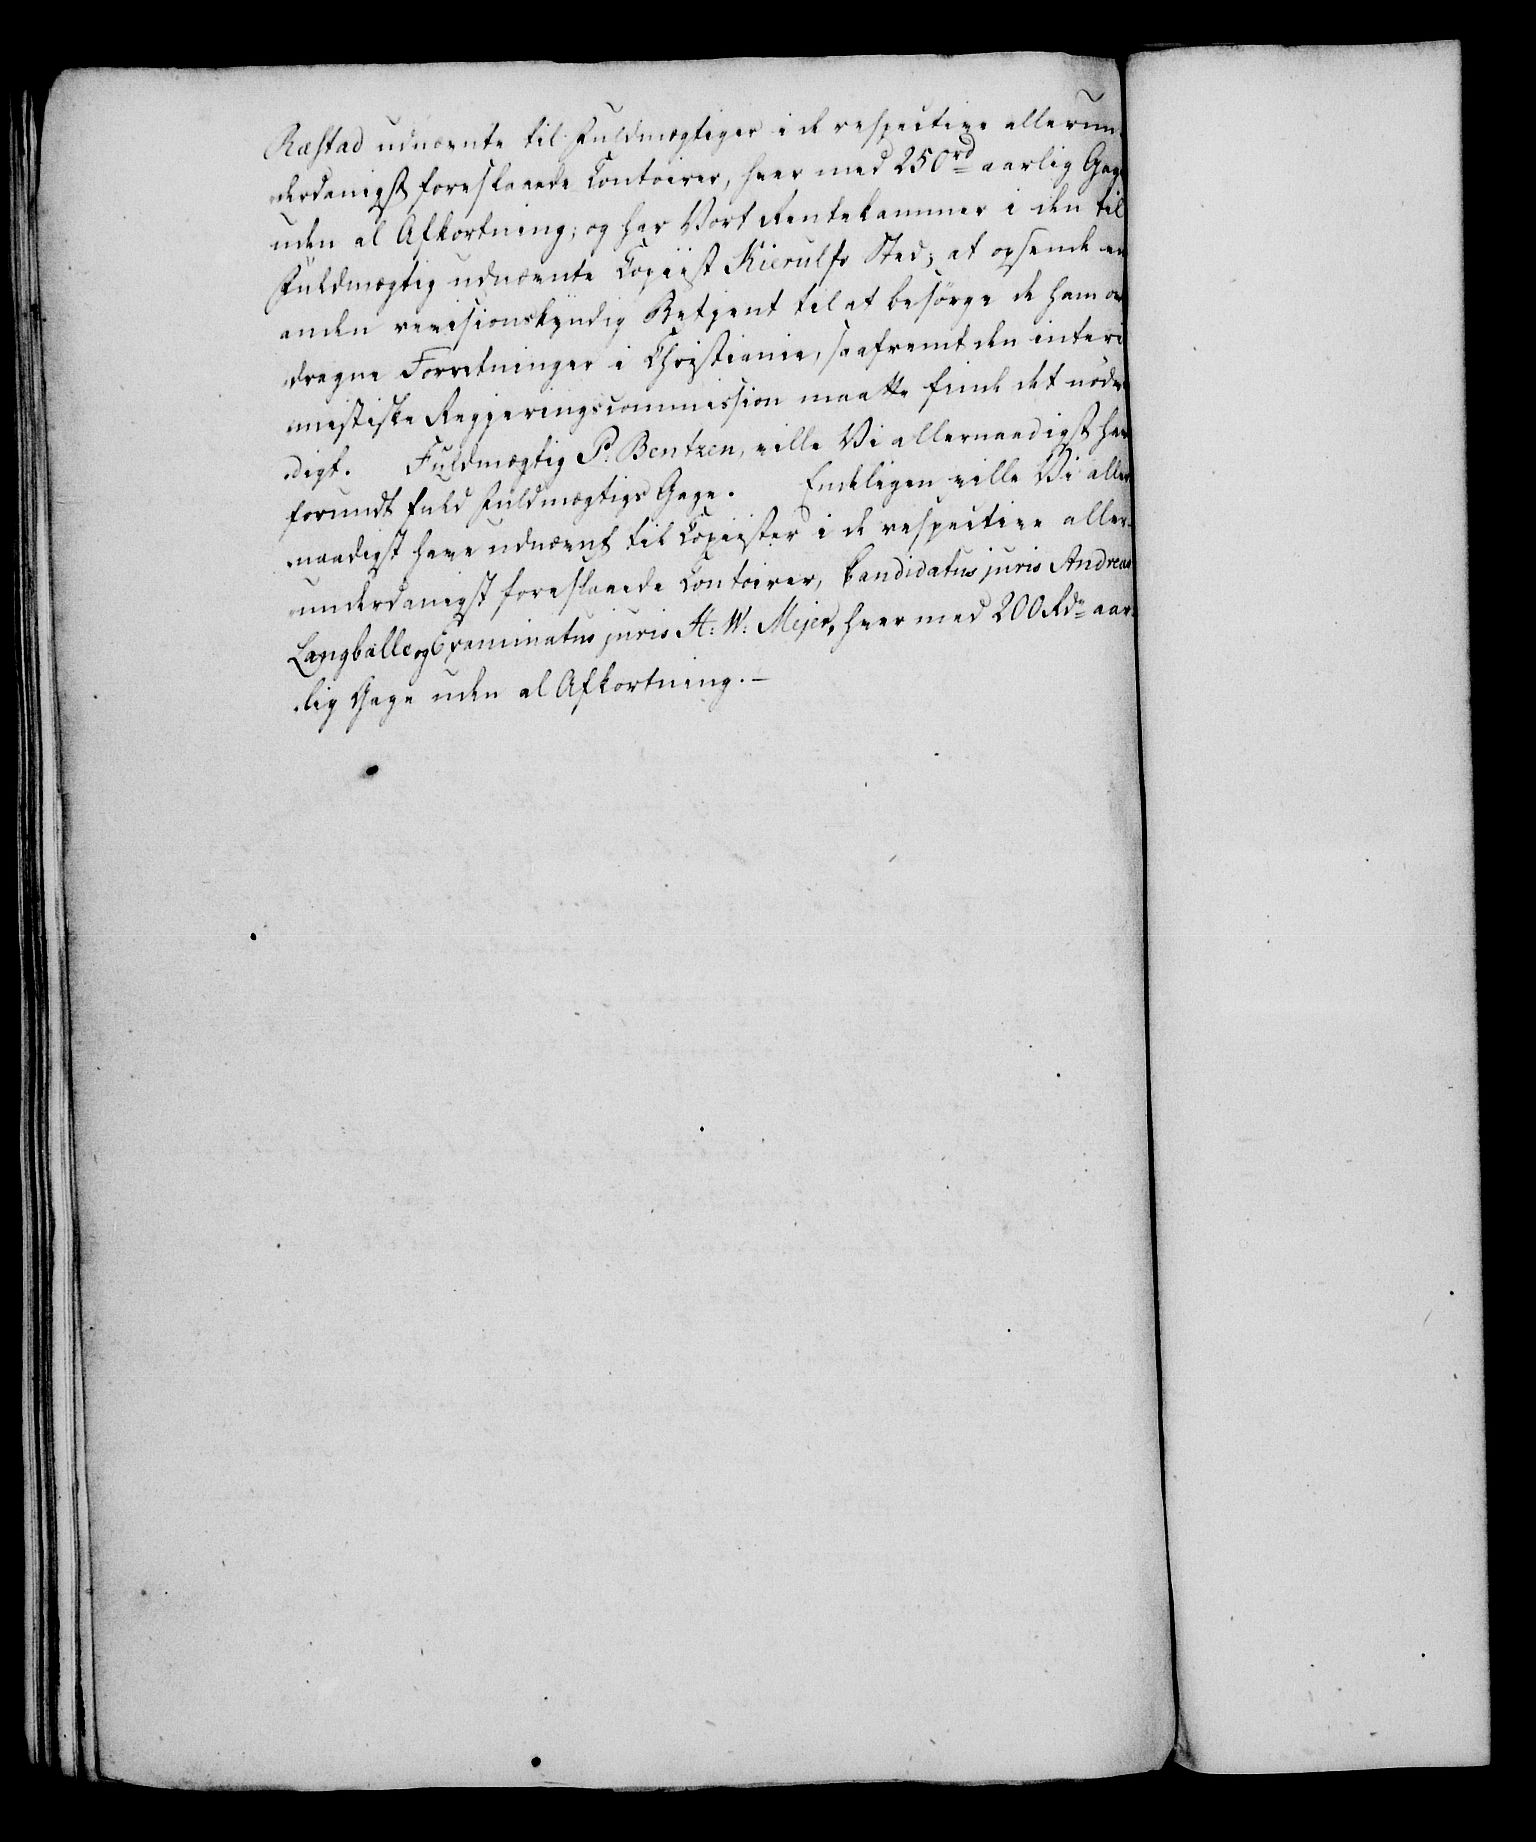 Ræstad udnævnte til Fuldmægtiger i de respective allerun-
derdanigst foreslaaede Contoirer, hver med 250 rd aarlig Gage
uden al Afkortning; og har Vort Rentekammer i den til
Fuldmægtig udnævnte Copiist Kierulfs Sted, at opsende en
anden revisionskyndig Betjent til at besørge de ham over
dragne Forretninger i Christiania, saafremt den interi
mistiske Regjeringscommission maatte finde det nødven
digt. Fuldmægtig P. Bentzen, ville Vi allernaadigst have
forundt fuld Fuldmægtigs Gage. Endeligen ville Vi aller
naadigst have udnævnt til Copiister i de respective aller-
underdanigst foreslaaede Contoirer, Candidatus juris Andreas
Langballe og Examinatus juris H: W: Mejer, hver med 200 Rdr aar-
lig Gage uden al Afkortning.-